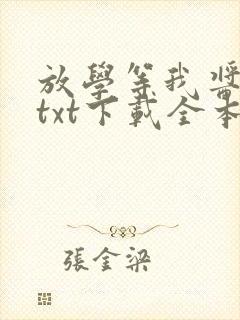 放學等我酱
txt下載全本
張金梁